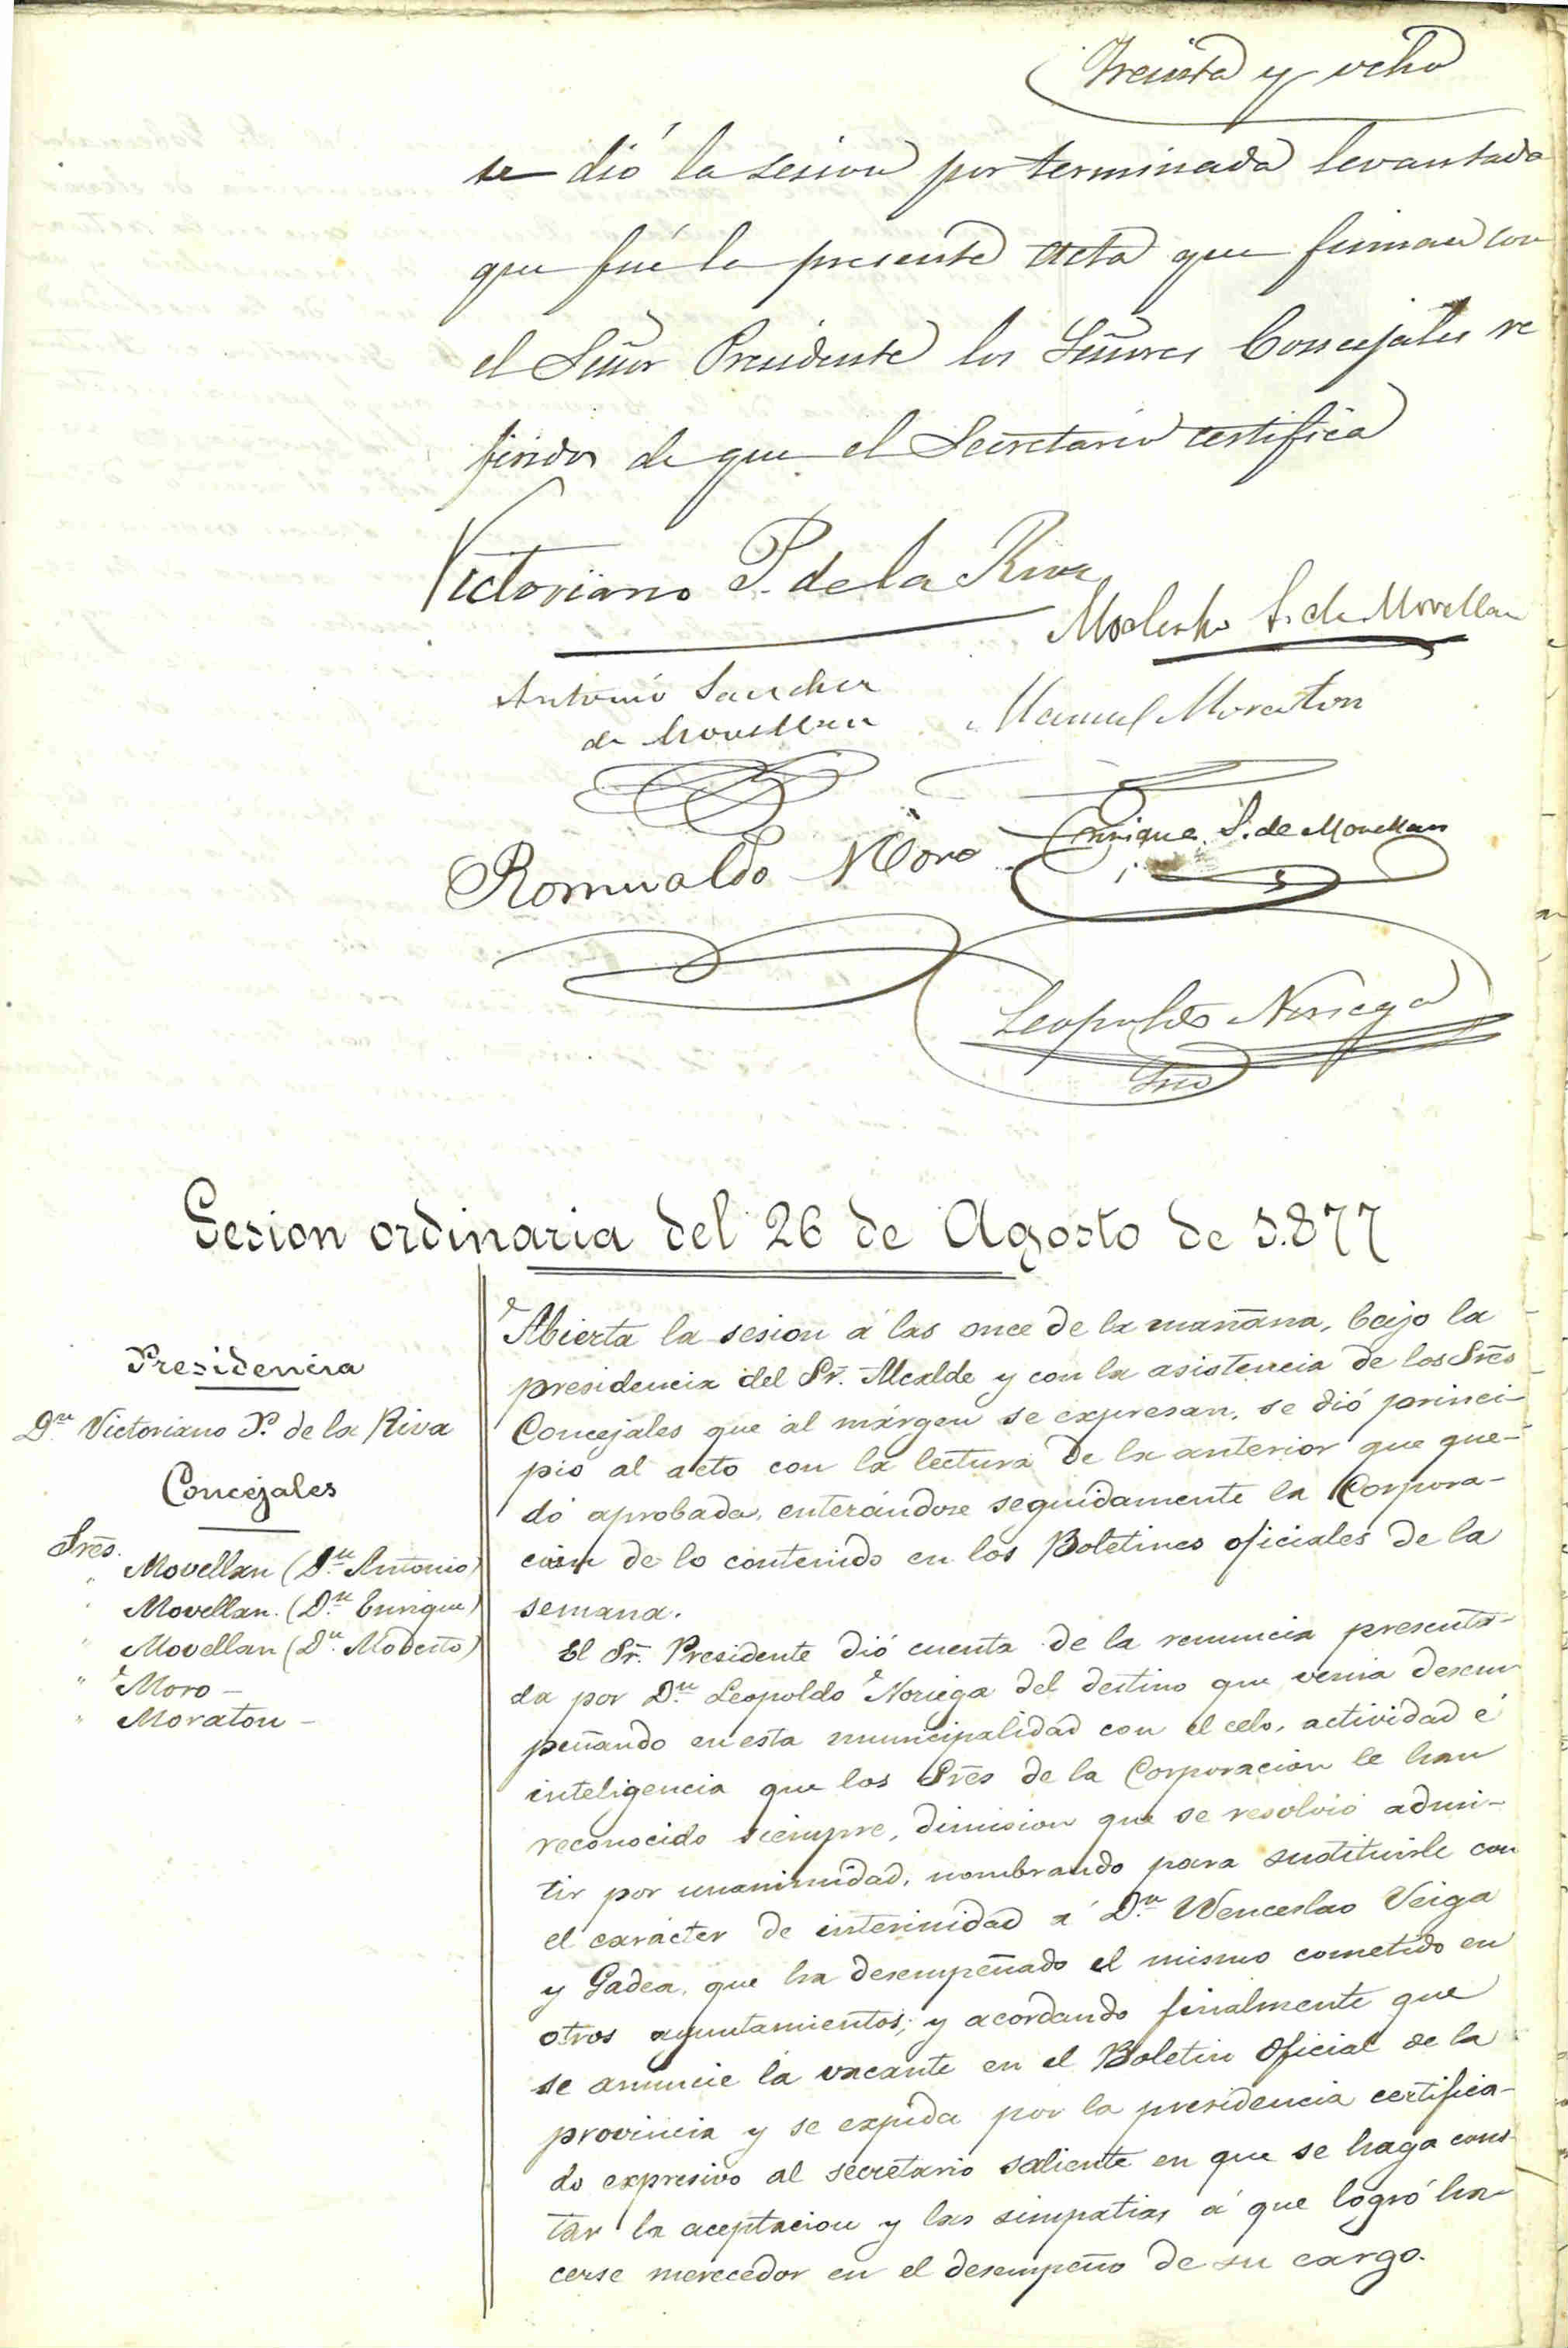 Treinta y ocho
se dió la sesion por terminada levantada
que fué la presente acta que firman con
el Señor Presidente los Señores Concejales re
feridos de que el Secretario certifica
Victoriano P. de la Riva
Modesto S. de Movellan
Antonio Sanchez
de Movellan
Manuel Moraton
Romualdo Moro
Enrique S. de Movellan
Leopoldo Noriega
Srio
Sesion ordinaria del 26 de Agosto de 1.877
Presidencia
Dn Victoriano P. de la Riva
Concejales
Sres.
Movellan (Dn Antonio)
" Movellan. (Dn Enrique)
" Movellan (Dn Modesto)
" Moro -
" Moraton -
Abierta la sesion á las once de la mañana, bajo la
presidencia del Sr. Alcalde y con la asistencia de los Sres
Concejales que al márgen se expresan, se dió princi-
pio al acto con la lectura de la anterior que que-
dó aprobada, enterándose seguidamente la Corpora-
cion de lo contenido en los Boletines oficiales de la
semana.
El Sr. Presidente dió cuenta de la renuncia presenta-
da por Dn Leopoldo Noriega del destino que venia desem
peñando en esta municipalidad con el celo, actividad é
inteligencia que los Sres de la Corporacion le han
reconocido siempre, dimision que se resolvió admi-
tir por unanimidad, nombrando para sustituirle con
el carácter de interinidad á Dn Wenceslao Veiga
y Gadea, que ha desempeñado el mismo cometido en
otros ayuntamientos; y acordando finalmente que
se anuncie la vacante en el Boletin Oficial de la
provincia y se expida por la presidencia certifica-
do expresivo al secretario saliente en que se haga cons-
tar la aceptacion y las simpatias á que logró ha-
cerse merecedor en el desempeño de su cargo.